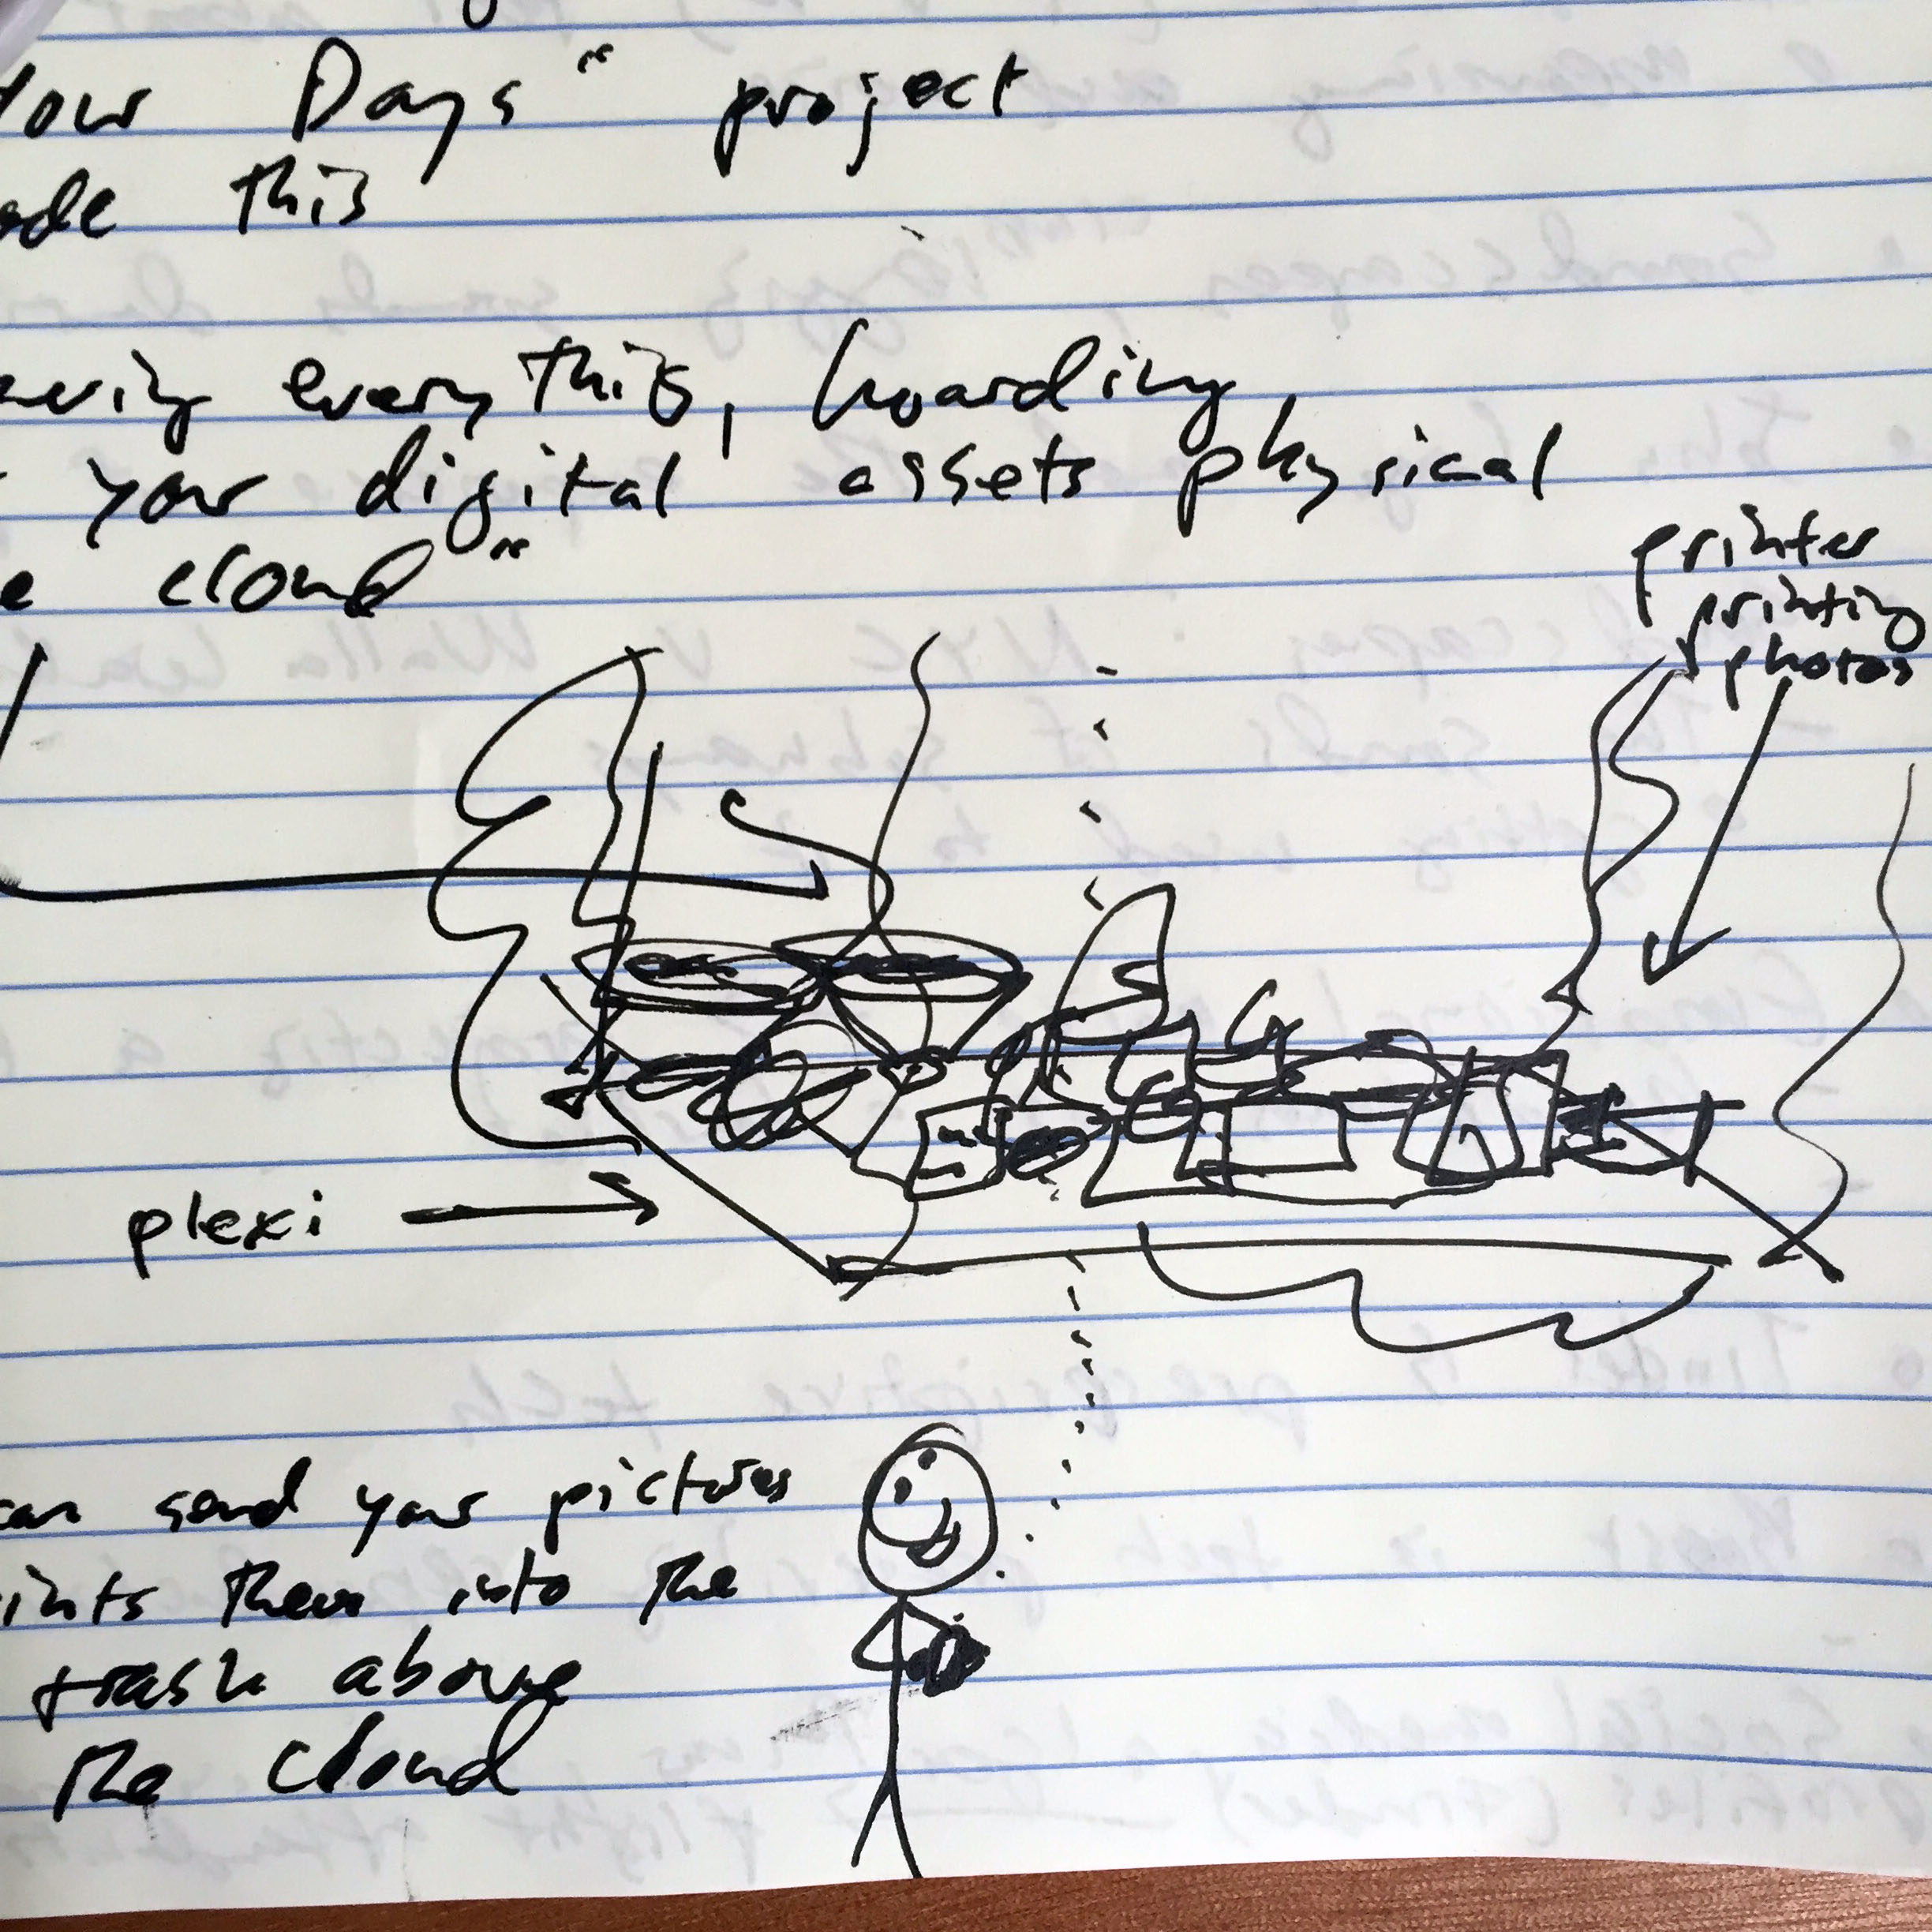 Days" project
this
everything, hoarding
your digital assets physical
cloud"
printer
printing
photos
plexi
can send your pictures
them into the
trash above
the cloud